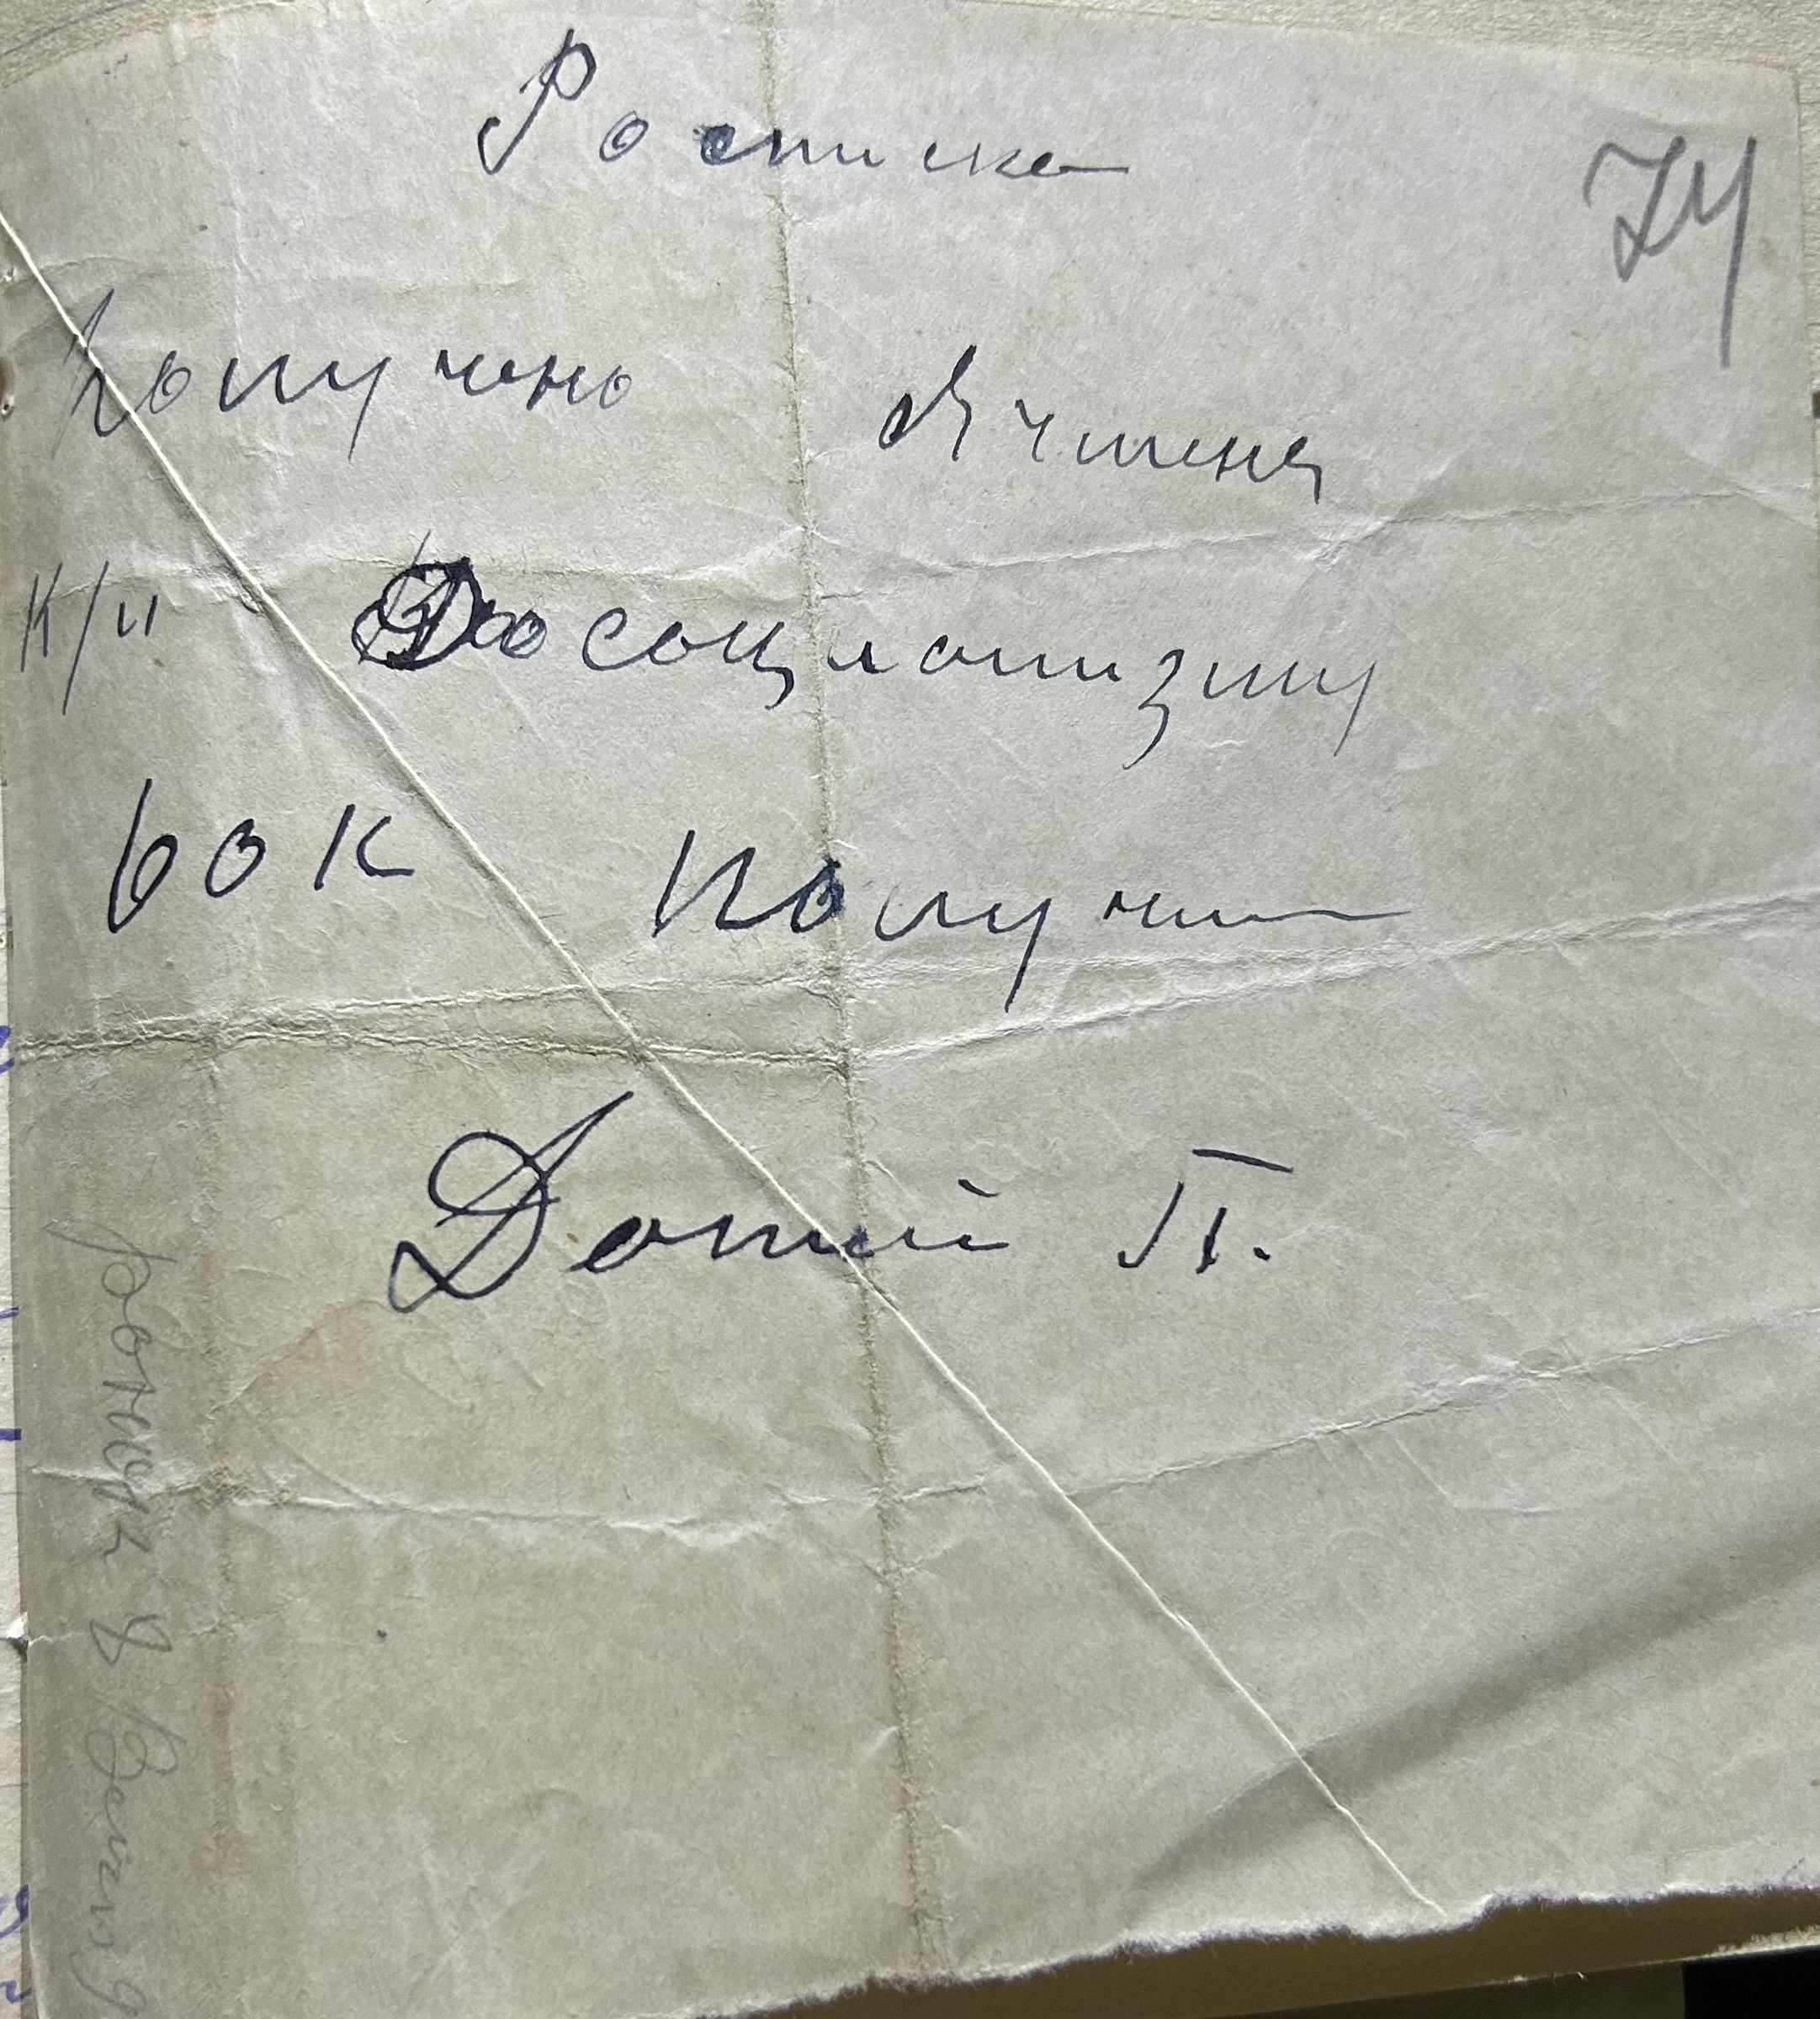 Росписка
74
получено Ячменя
к/и До социлотизму
60 к получил
Дотий П.